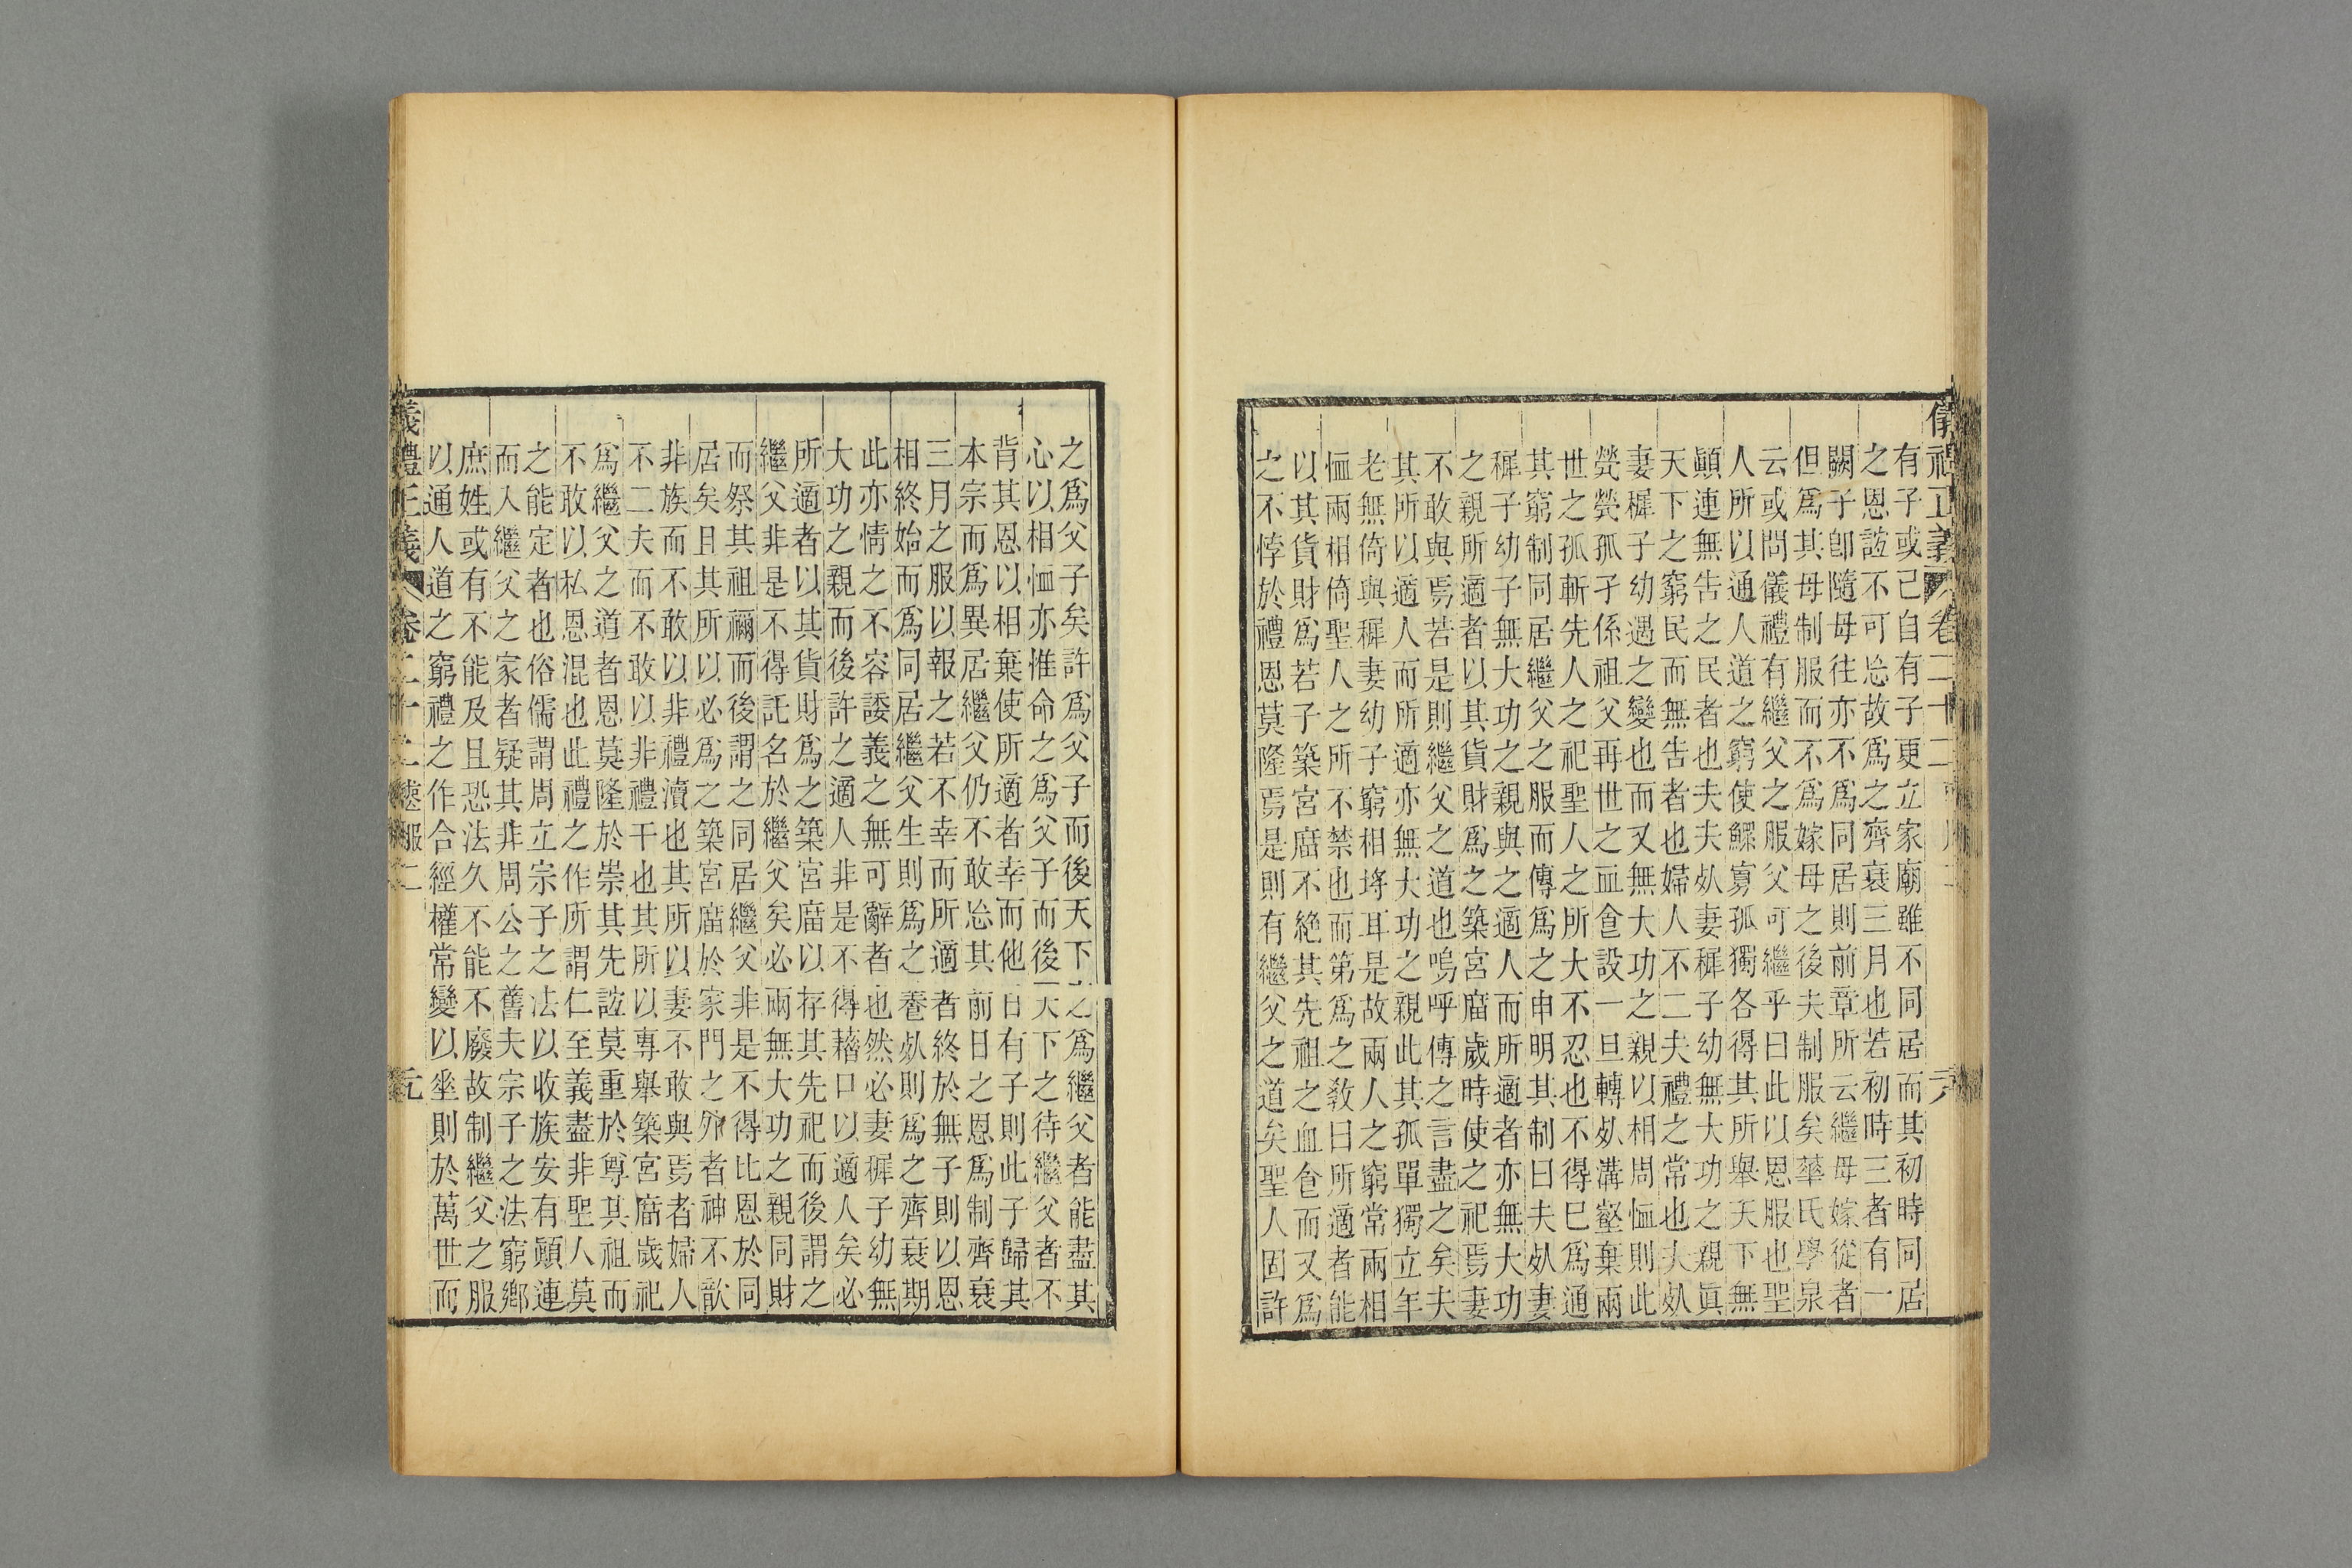 儀禮正義 卷二十二 服二 天
有子或已自有子更立家廟雖不同居而其初時同居
之恩誼不可忘故爲之齊衰三月也若初時三者有一
闕子卽隨母往亦不爲同居則前章所云繼母嫁從者
但爲其母制服而不爲嫁母之後夫制服矣華氏學泉
云或問儀禮有繼父之服父可繼乎曰此以恩服也聖
人所以通人道之窮使鰥寡孤獨各得其所舉天下無
顚連無告之民者也夫夫𣦸妻穉子幼無大功之親眞
天下之窮民而無告者也婦人不二夫禮之常也夫𣦸
妻穉子幼遇之變也而又無大功之親以相周恤則此
煢煢孤孑係祖父再世之血食設一旦轉𣦸溝壑棄兩
世之孤斬先人之祀聖人之所大不忍也不得已爲通
其窮制同居繼父之服而傳爲之申明其制曰夫𣦸妻
穉子幼子無大功之親與之適人而所適者亦無大功
之親所適者以其貨財爲之築宮廟歲時使之祀焉妻
不敢與焉若是則繼父之道也嗚呼傳之言盡之矣夫
其所以適人而所適亦無大功之親此其孤單獨立年
老無倚與穉妻幼子窮相埓耳是故兩人之窮常兩相
恤兩相倚聖人之所不禁也而第爲之敎曰所適者能
以其貨財爲若子築宮廟不絶其先祖之血食而又爲
之不悖於禮恩莫隆焉是則有繼父之道矣聖人固許
之爲父子矣許爲父子而後天下之爲繼父者能盡其
心以相恤亦惟命之爲父子而後天下之待繼父者不
背其恩以相棄使所適者幸而他日有子則此子歸其
本宗而爲異居繼父仍不敢忘其前日之恩爲制齊衰
三月之服以報之若不幸而所適者終於無子則以恩
相終始而爲同居繼父生則爲之養𣦸則爲之齊衰期
此亦情之不容諉義之無可辭者也然必妻穉子幼無
大功之親而後許之適人非是不得藉口以適人矣必
所適者以其貨財爲之築宮廟以存其先祀而後謂之
繼父非是不得託名於繼父矣必兩無大功之親同財
而祭其祖禰而後謂之同居繼父非是不得比恩於同
居矣且其所以必爲之築宮廟於家門之外者神不歆
非族而不敢以非禮瀆也其所以妻不敢與焉者婦人
不二夫而不敢以非禮干也其所以專舉築宮廟歲祀
爲繼父之道者恩莫隆於崇其先誼莫重於尊其祖而
不敢以私恩混也此禮之作所謂仁至義盡非聖人莫
之能定者也俗儒謂周立宗子之法以收族安有顚連
而入繼父之家者疑其非周公之舊夫宗子之法窮鄕
庶姓或有不能及且恐法久不能不廢故制繼父之服
以通人道之窮禮之作合經權常變以㘴則於萬世而
儀禮正義 卷二十二 喪服二 元